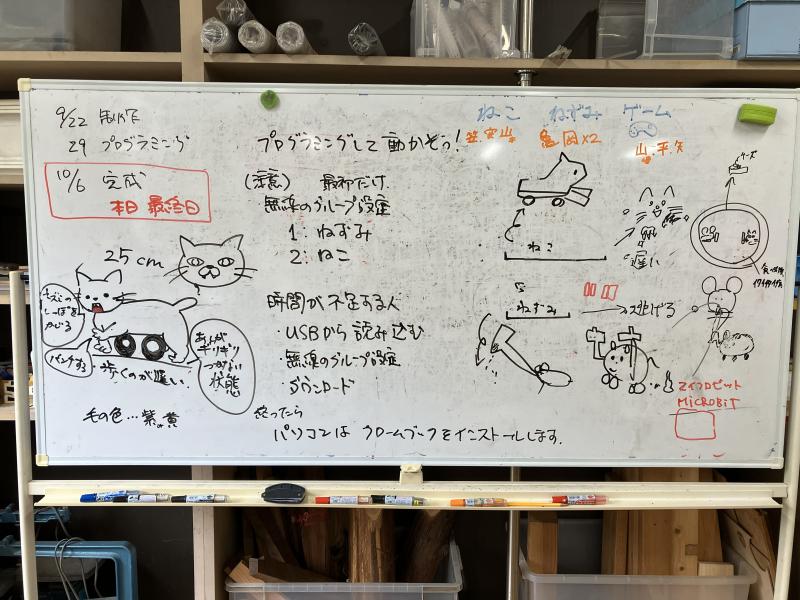 9/22 制作
29 プログラミング
10/6 完成
本日 最終日
プログラミングして動かそう!
(注意) 最初だけ
無線のグループ設定
1: ねずみ
2: ねこ
時間が不足する人
・USBから読み込む
・無線のグループ設定
・ダウンロード
終ったら
パソコンは クロームブックをインストールします.
ねこ ねずみ ゲーム
×2
山.平.矢
ねこ
遅い
チーズ
ねずみ
→ 逃げる
マイクロビット
MiCROBiT
25cm
ねずみの
しっぽを
かじる
パンクする
・歩くのが遅い.
あしが
ギリギリ
つかない
状態
毛の色…紫or黄